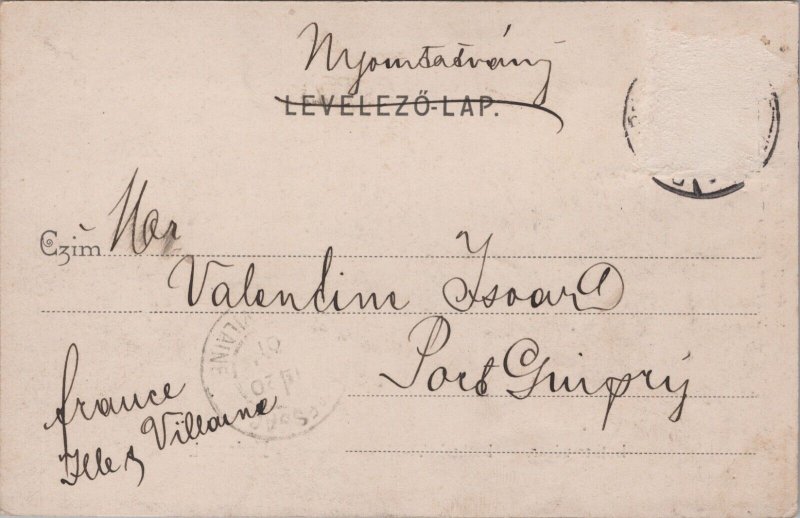 Nyomtatvány
LEVELEZŐ-LAP.
Czím Mor
Valentine Isoard
Port Guipry
france
Ille & Villaine
VILAINE